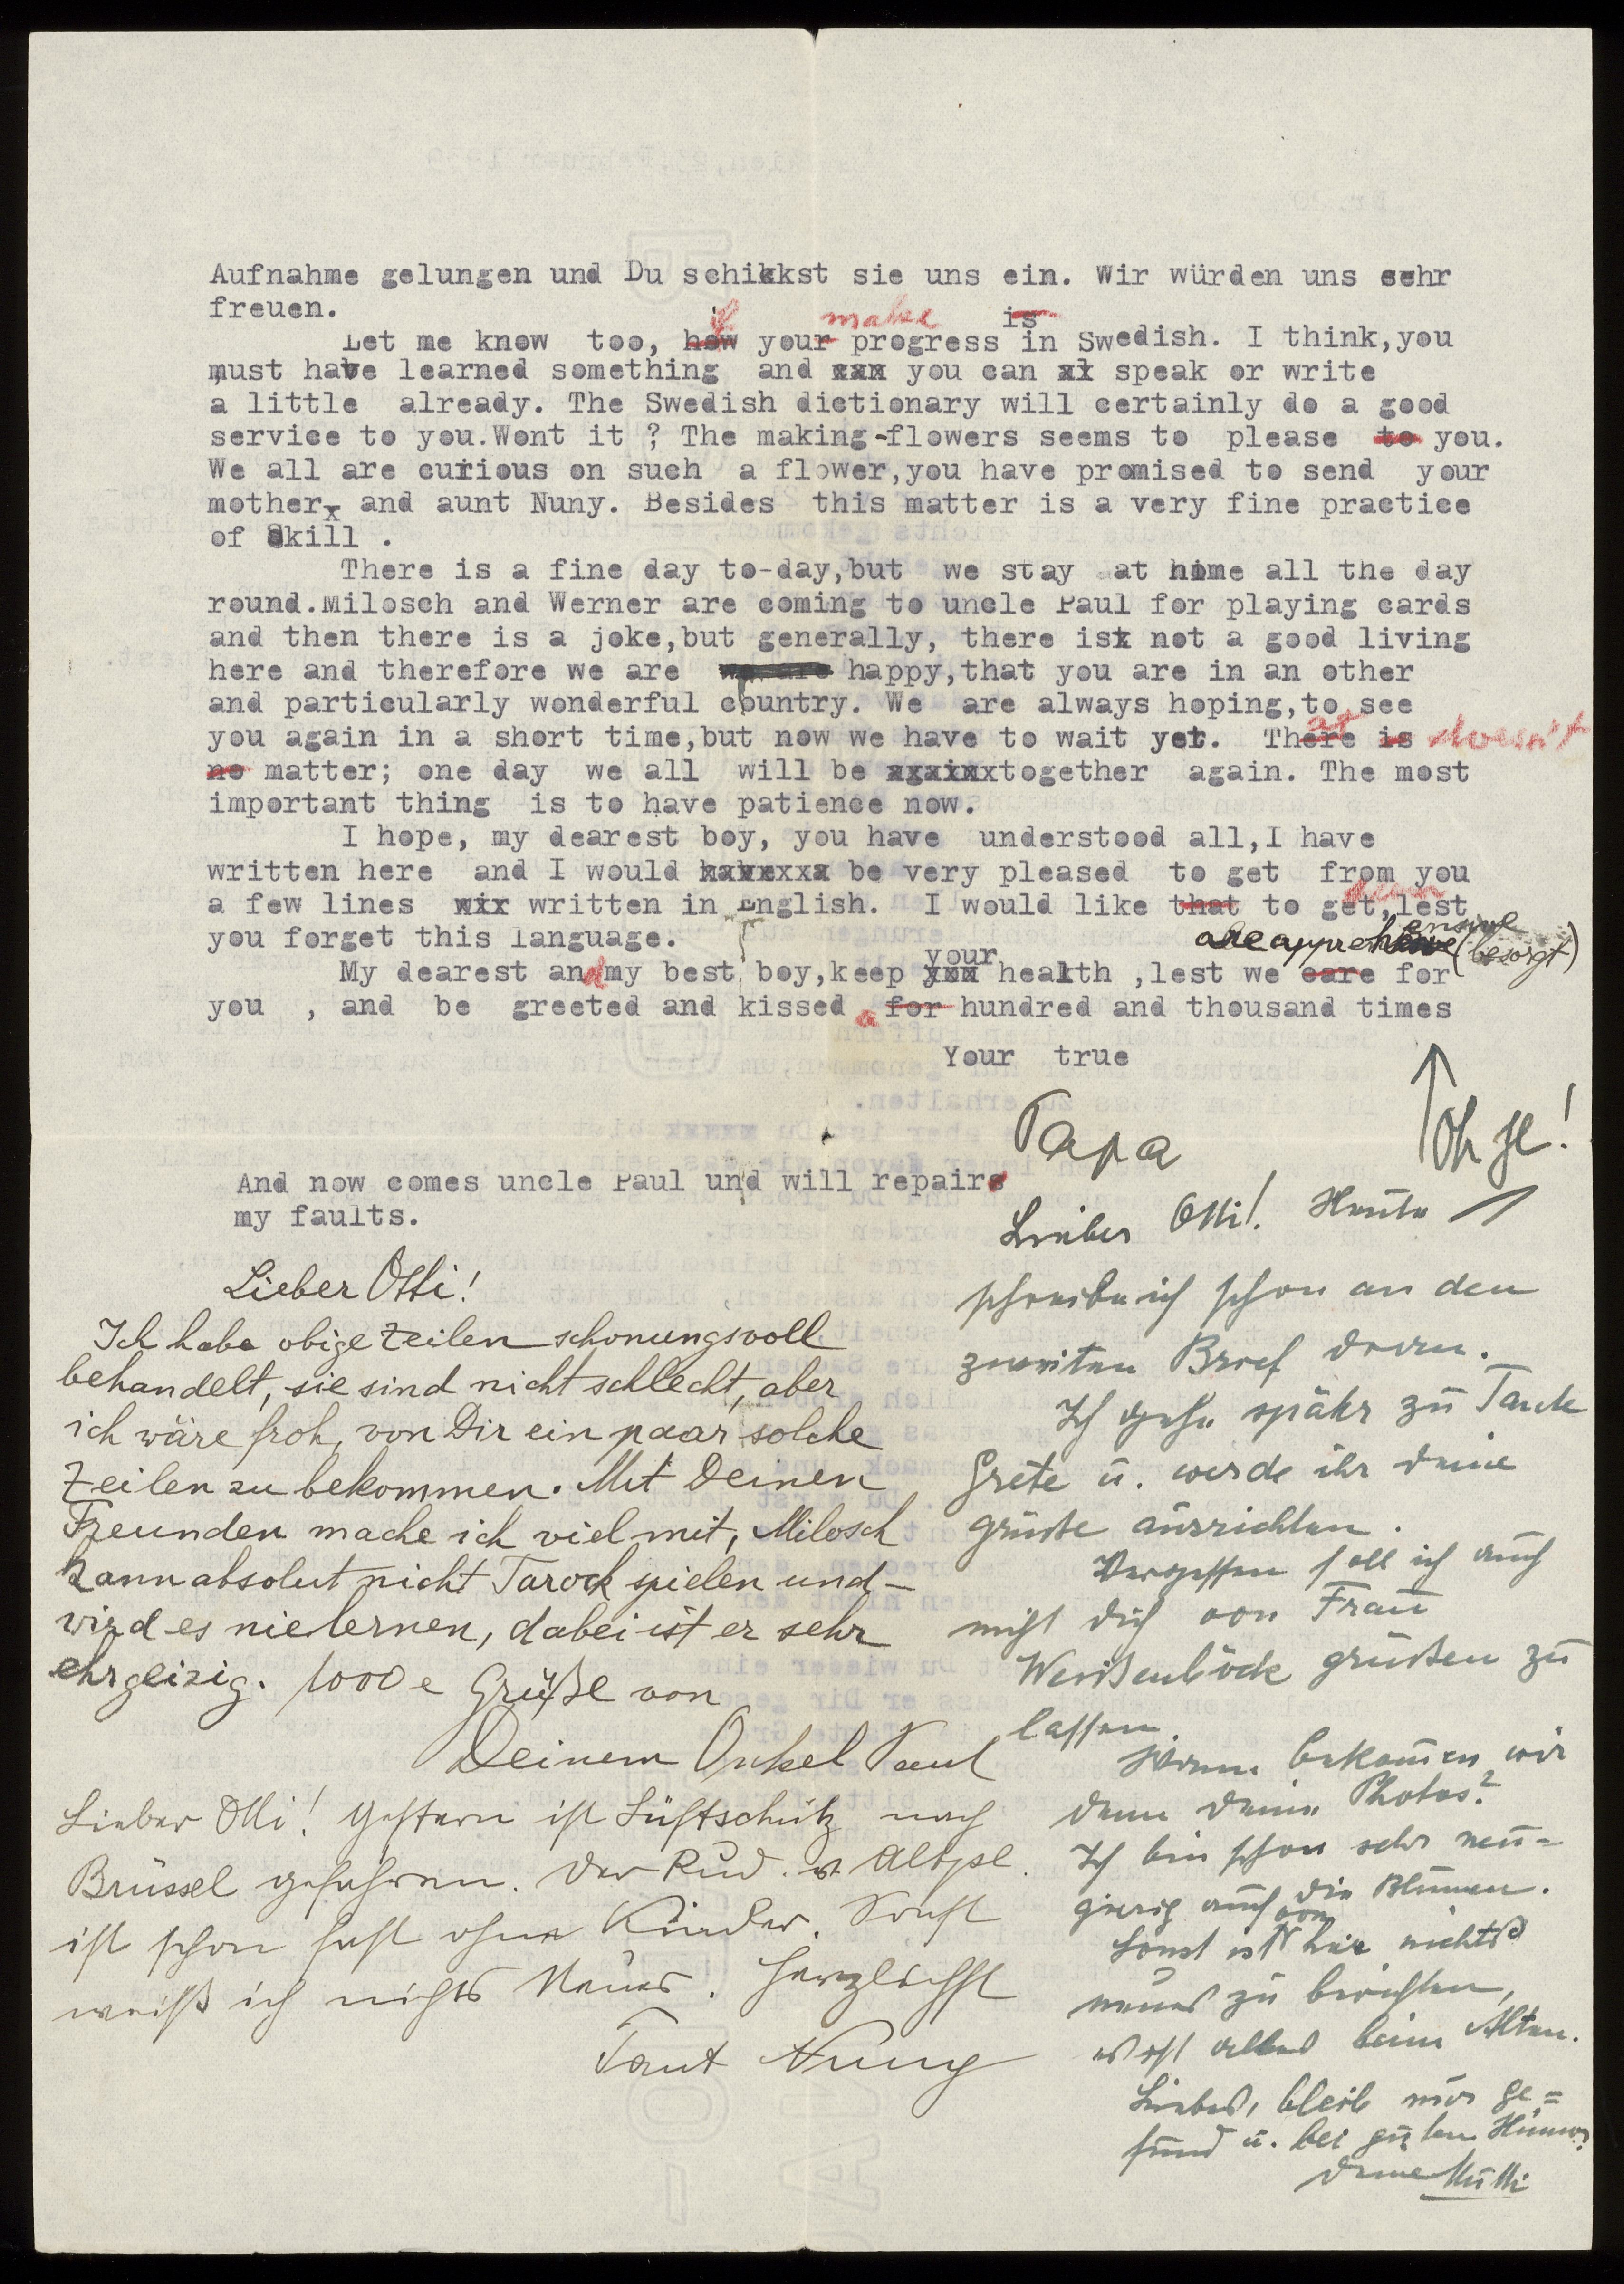 Aufnahme gelungen und Du schikkst sie uns ein. Wir würden uns sehr
freuen.
Let me know too, how if your make progress is in Swedish. I think,you
must have learned something and xxx you can xx speak or write
a little already. The Swedish dictionary will certainly do a good
service to you.Wont it ? The making-flowers seems to please to you.
We all are curious on such a flower,you have promised to send your
mother, and aunt Nuny. Besides this matter is a very fine practice
of Skill .
There is a fine day to-day,but we stay at home all the day
round.Milosch and Werner are coming to uncle Paul for playing cards
and then there is a joke,but generally, there isx not a good living
here and therefore we are we are happy,that you are in an other
and particularly wonderful country. We are always hoping,to see
you again in a short time,but now we have to wait yet. There at is doesn't
no matter; one day we all will be xxxxxxxtogether again. The most
important thing is to have patience now.
I hope, my dearest boy, you have understood all,I have
written here and I would xxxxxxx be very pleased to get from you
a few lines wix written in English. I would like that to get, lest
you forget this language. are apprehensive (besorgt)
My dearest and my best boy,keep xxx your health ,lest we care for
you , and be greeted and kissed a for hundred and thousand times
Your true
Papa
Oh je!
And now comes uncle Paul und will repaire
my faults.
Lieber Otti!
Ich habe obige Zeilen schonungsvoll
behandelt, sie sind nicht schlecht, aber
ich wäre froh, von Dir ein paar solche
Zeilen zu bekommen. Mit Deinen
Freunden mache ich viel mit, Milosch
kann absolut nicht Tarock spielen und
wird es nie lernen, dabei ist er sehr
ehrgeizig. 1000e Grüße von
Deinem Onkel Paul
Lieber Otti! Gestern ist Luftschütz nach
Brüssel gefahren. Der Rud.
ist schon fast ohne Kinder. Sonst
weiß ich nichts Neues. Herzlichst
Tant Nuny
Lieber Otti! Heute
schreibe ich schon an den
zweiten Brief daran.
Ich gehe später zu Tante
Grete u. werde ihr deine
Grüße ausrichten.
Vergessen soll ich auch
nicht dich von Frau
Weißenböck grüßen zu
lassen.
Wann bekommen wir
denn deine Photos?
Ich bin schon sehr neu=
gierig auch die Blumen.
Sonst ist von hier nichts
neues zu berichten,
es ist alles beim Alten.
Liebes, bleib nur ge=
sund u. bei guten Humor
deine Mutti